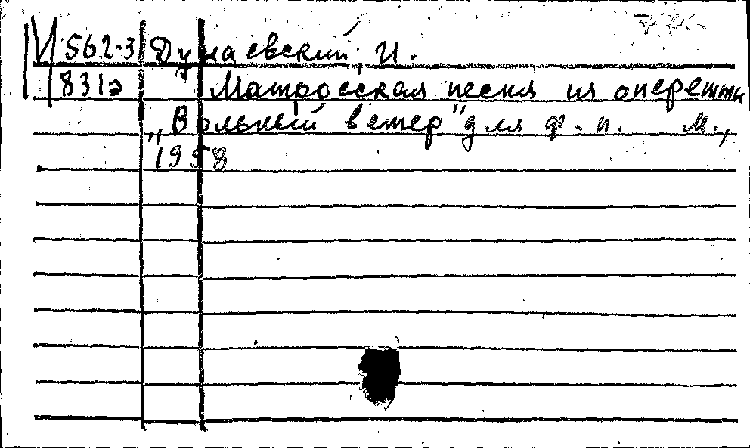 М 562-3 Дунаевский, И.
831э Матросская песня из оперетты
„Вольный ветер" для ф.-п. М.,
1958